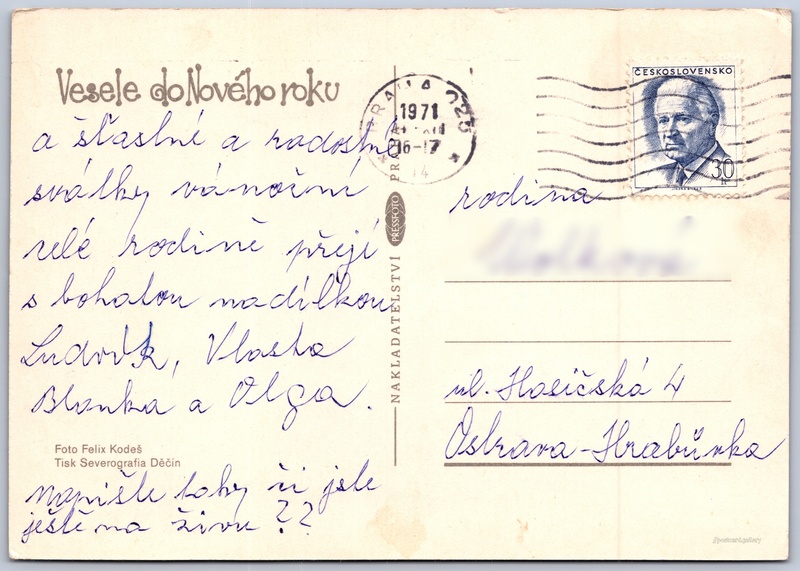 Vesele do Nového roku
a šťastné a radostné
svátky vánoční
celé rodině přejí
s bohatou nadílkou
Ludvík, Vlasta
Blanka a Olga.
Foto Felix Kodeš
Tisk Severografia Děčín
napište taky či jste
ještě na živu ??
NAKLADATELSTVÍ PRESSFOTO PRAHA
PRAHA 025
1971
16-17
14
ČESKOSLOVENSKO
30
rodina
ul. Hasičská 4
Ostrava-Hrabůvka